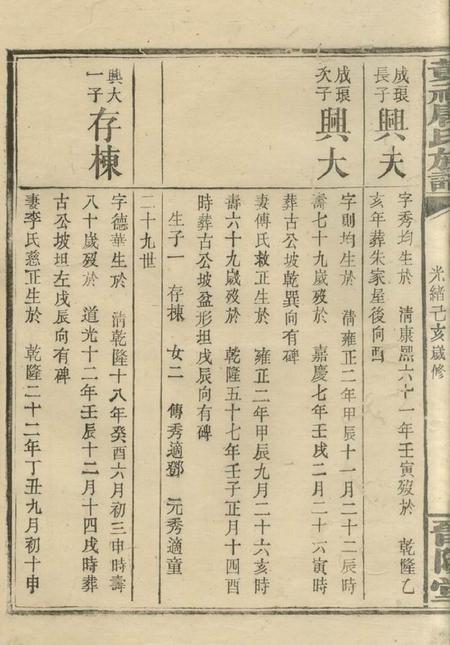 黃　周氏族譜
光緒己亥歲修
晉陽堂
成琅長子 興夫
字秀均生於 清康熙六十一年壬寅歿於 乾隆乙
亥年葬朱家屋後向酉
成琅次子 興大
字則均生於 清雍正二年甲辰十一月二十二辰時
壽七十九歲歿於 嘉慶七年壬戌二月二十六寅時
葬古公坡乾巽向有碑
妻傅氏敕正生於 雍正二年甲辰九月二十六亥時
壽六十九歲歿於 乾隆五十七年壬子正月十四酉
時葬古公坡盆形坦戌辰向有碑
生子一 存棟 女二 傳秀適鄧 元秀適童
二十九世
興大一子 存棟
字德華生於 清乾隆十八年癸酉六月初三申時壽
八十歲歿於 道光十二年壬辰十二月十四戌時葬
古公坡坦左戌辰向有碑
妻李氏慈正生於 乾隆二十二年丁丑九月初十申